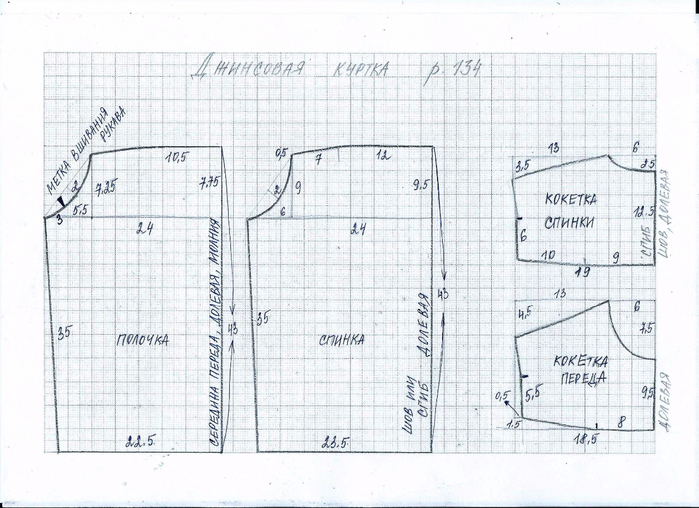 Джинсовая куртка р. 134
МЕТКА ВШИВАНИЯ
РУКАВА
2
3
5,5
7,25
10,5
7,75
24
35
ПОЛОЧКА
СЕРЕДИНА ПЕРЕДА, ДОЛЕВАЯ, МОЛНИЯ
43
22.5
0,5
7
12
2
9
9,5
6
24
35
СПИНКА
ШОВ ИЛИ
СГИБ ДОЛЕВАЯ
43
23.5
13
6
3,5
2,5
КОКЕТКА
СПИНКИ
12.5
6
10
19
9
СГИБ
ШОВ, ДОЛЕВАЯ
13
6
4,5
7,5
КОКЕТКА
ПЕРЕДА
5,5
9,5
0,5
1.5
8
18,5
ДОЛЕВАЯ